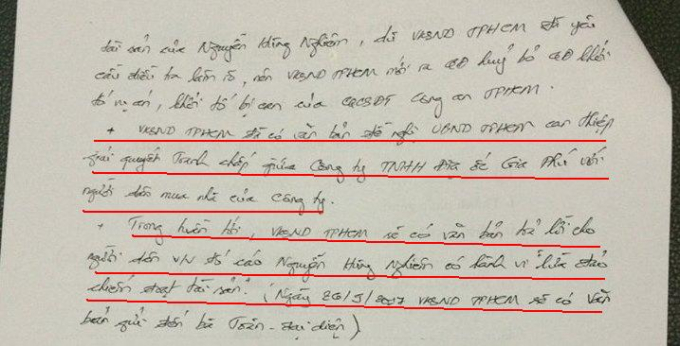 tài sản của Nguyễn Hùng Nghiêm, dù VKSND TPHCM đã yêu
cầu điều tra làm rõ, nên VKSND TPHCM mới ra QĐ huỷ bỏ QĐ khởi
tố vụ án, khởi tố bị can của CQCSĐT Công an TPHCM.
+ VKSND TPHCM đã có văn bản đề nghị UBND TPHCM can thiệp
giải quyết Tranh chấp giữa Công ty TNHH Địa ốc Gia Phú với
người dân mua nhà của Công ty.
+ Trong tuần tới, VKSND TPHCM sẽ có văn bản trả lời cho
người dân v/v tố cáo Nguyễn Hùng Nghiêm có hành vi "lừa đảo
chiếm đoạt tài sản". (Ngày VKSND TPHCM sẽ có văn
bản gửi đến bà Toàn - đại diện)